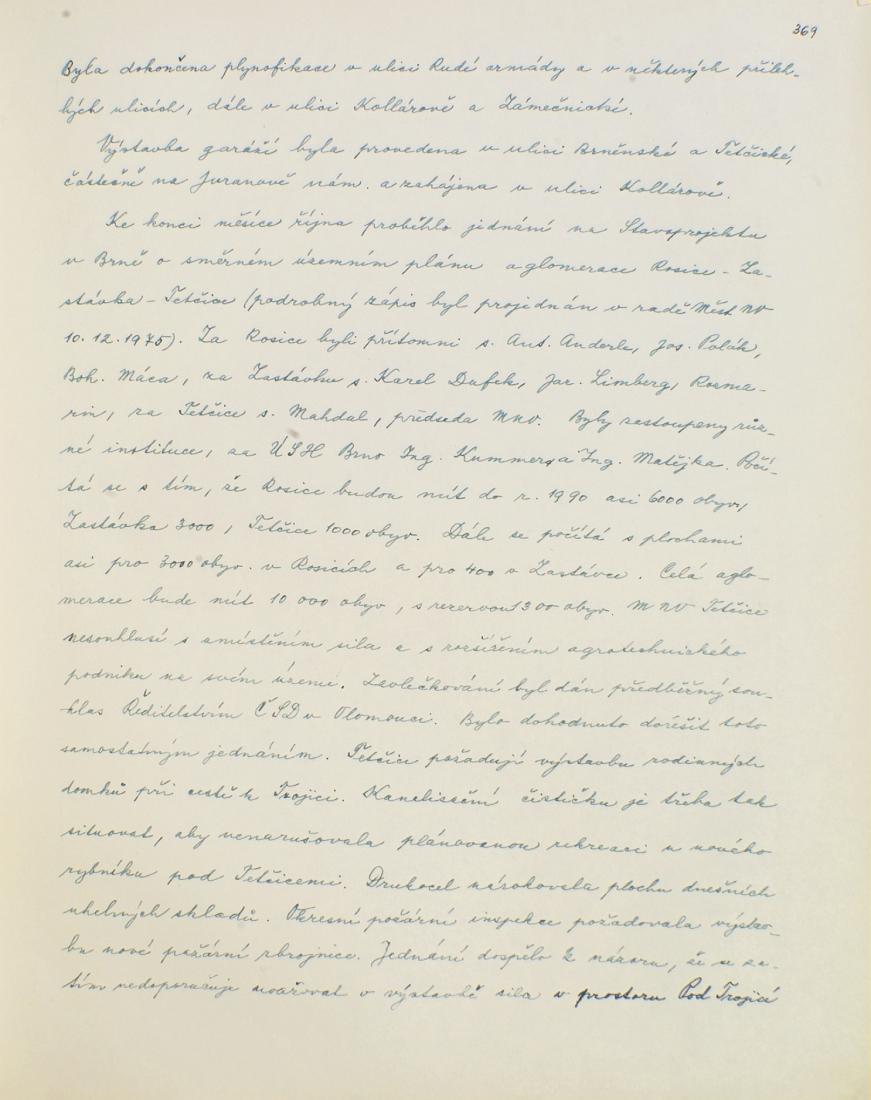 369
Byla dokončena plynofikace v ulici Rudé armády a v některých přileh-
lých ulicích, dále v ulici Kollárově a Zámečnické.
Výstavba garáží byla provedena v ulici Brněnské a Tetčické,
částečně na Juranově nám. a zahájena v ulici Kollárově.
Ke konci měsíce října proběhlo jednání na Stavoprojektu
v Brně o směrném územním plánu aglomerace Rosice - Za-
stávka - Tetčice (podrobný zápis byl projednán v radě Měst NV
10.12.1975). Za Rosice byli přítomni s. Ant. Anderle, Jos. Polák,
Boh. Máca, za Zastávku s. Karel Dufek, Jar. Limberg, Rosma-
rin, za Tetčice s. Mahdal, předseda MNV. Byly zastoupeny růz-
né instituce, za ÚSH Brno Ing. Kummer a Ing. Matějka. Počí-
tá se s tím, že Rosice budou mít do r. 1990 asi 6000 obyv,
Zastávka 3000, Tetčice 1000 obyv. Dále se počítá s plochami
asi pro 3000 obyv. v Rosicích a pro 400 v Zastávce. Celá aglo-
merace bude mít 10 000 obyv, s rezervou 1300 obyv. MNV Tetčice
nesouhlasí s umístěním sila a s rozšířením agrotechnického
podniku na svém území. Zavlečkování byl dán předběžný sou-
hlas Ředitelstvím ČSD v Olomouci. Bylo dohodnuto dořešit toto
samostatným jednáním. Tetčice požadují výstavbu rodinných
domků při cestě k Trojici. Kanalisační čističku je třeba tak
situovat, aby nenarušovala plánovanou rekreaci u nového
rybníku pod Tetčicemi. Drukocel nárokovala plochu dnešních
uhelných skladů. Okresní požární inspekce požadovala výstav-
bu nové požární zbrojnice. Jednání dospělo k názoru, že se za-
tím nedoporučuje uvažovat o výstavbě sila v prostoru Pod Trojicí